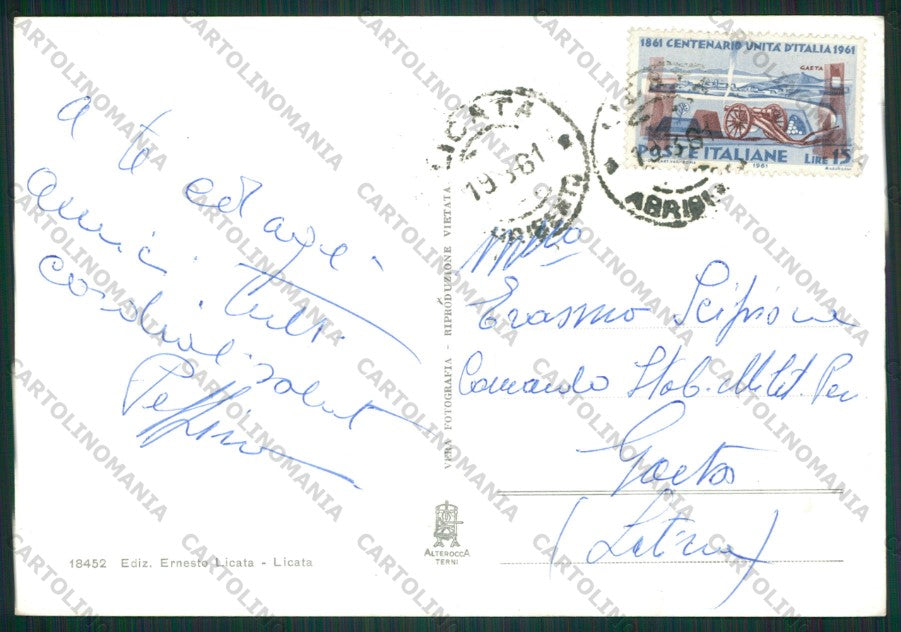 1861 CENTENARIO UNITÀ D'ITALIA 1961
GAETA
POSTE ITALIANE
LIRE 15
1961
LICATA
19 61
LICATA
19 61
A te
ed agli
amici tutti
cordiali saluti
Peppino
Erasmo Scipione
Comando Stab. Milit. Pen.
Gaeta
(Latina)
VERA FOTOGRAFIA - RIPRODUZIONE VIETATA
ALTEROCCA
TERNI
18452 Ediz. Ernesto Licata - Licata
CARTOLINOMANIA